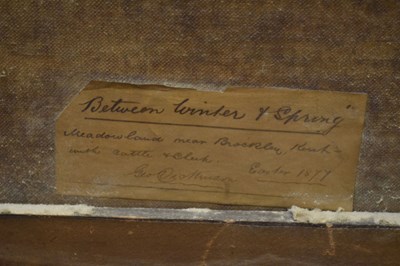 "Between Winter & Spring"
Meadowland near Brockley, Kent -
with cattle &
Easter 1877
Geo